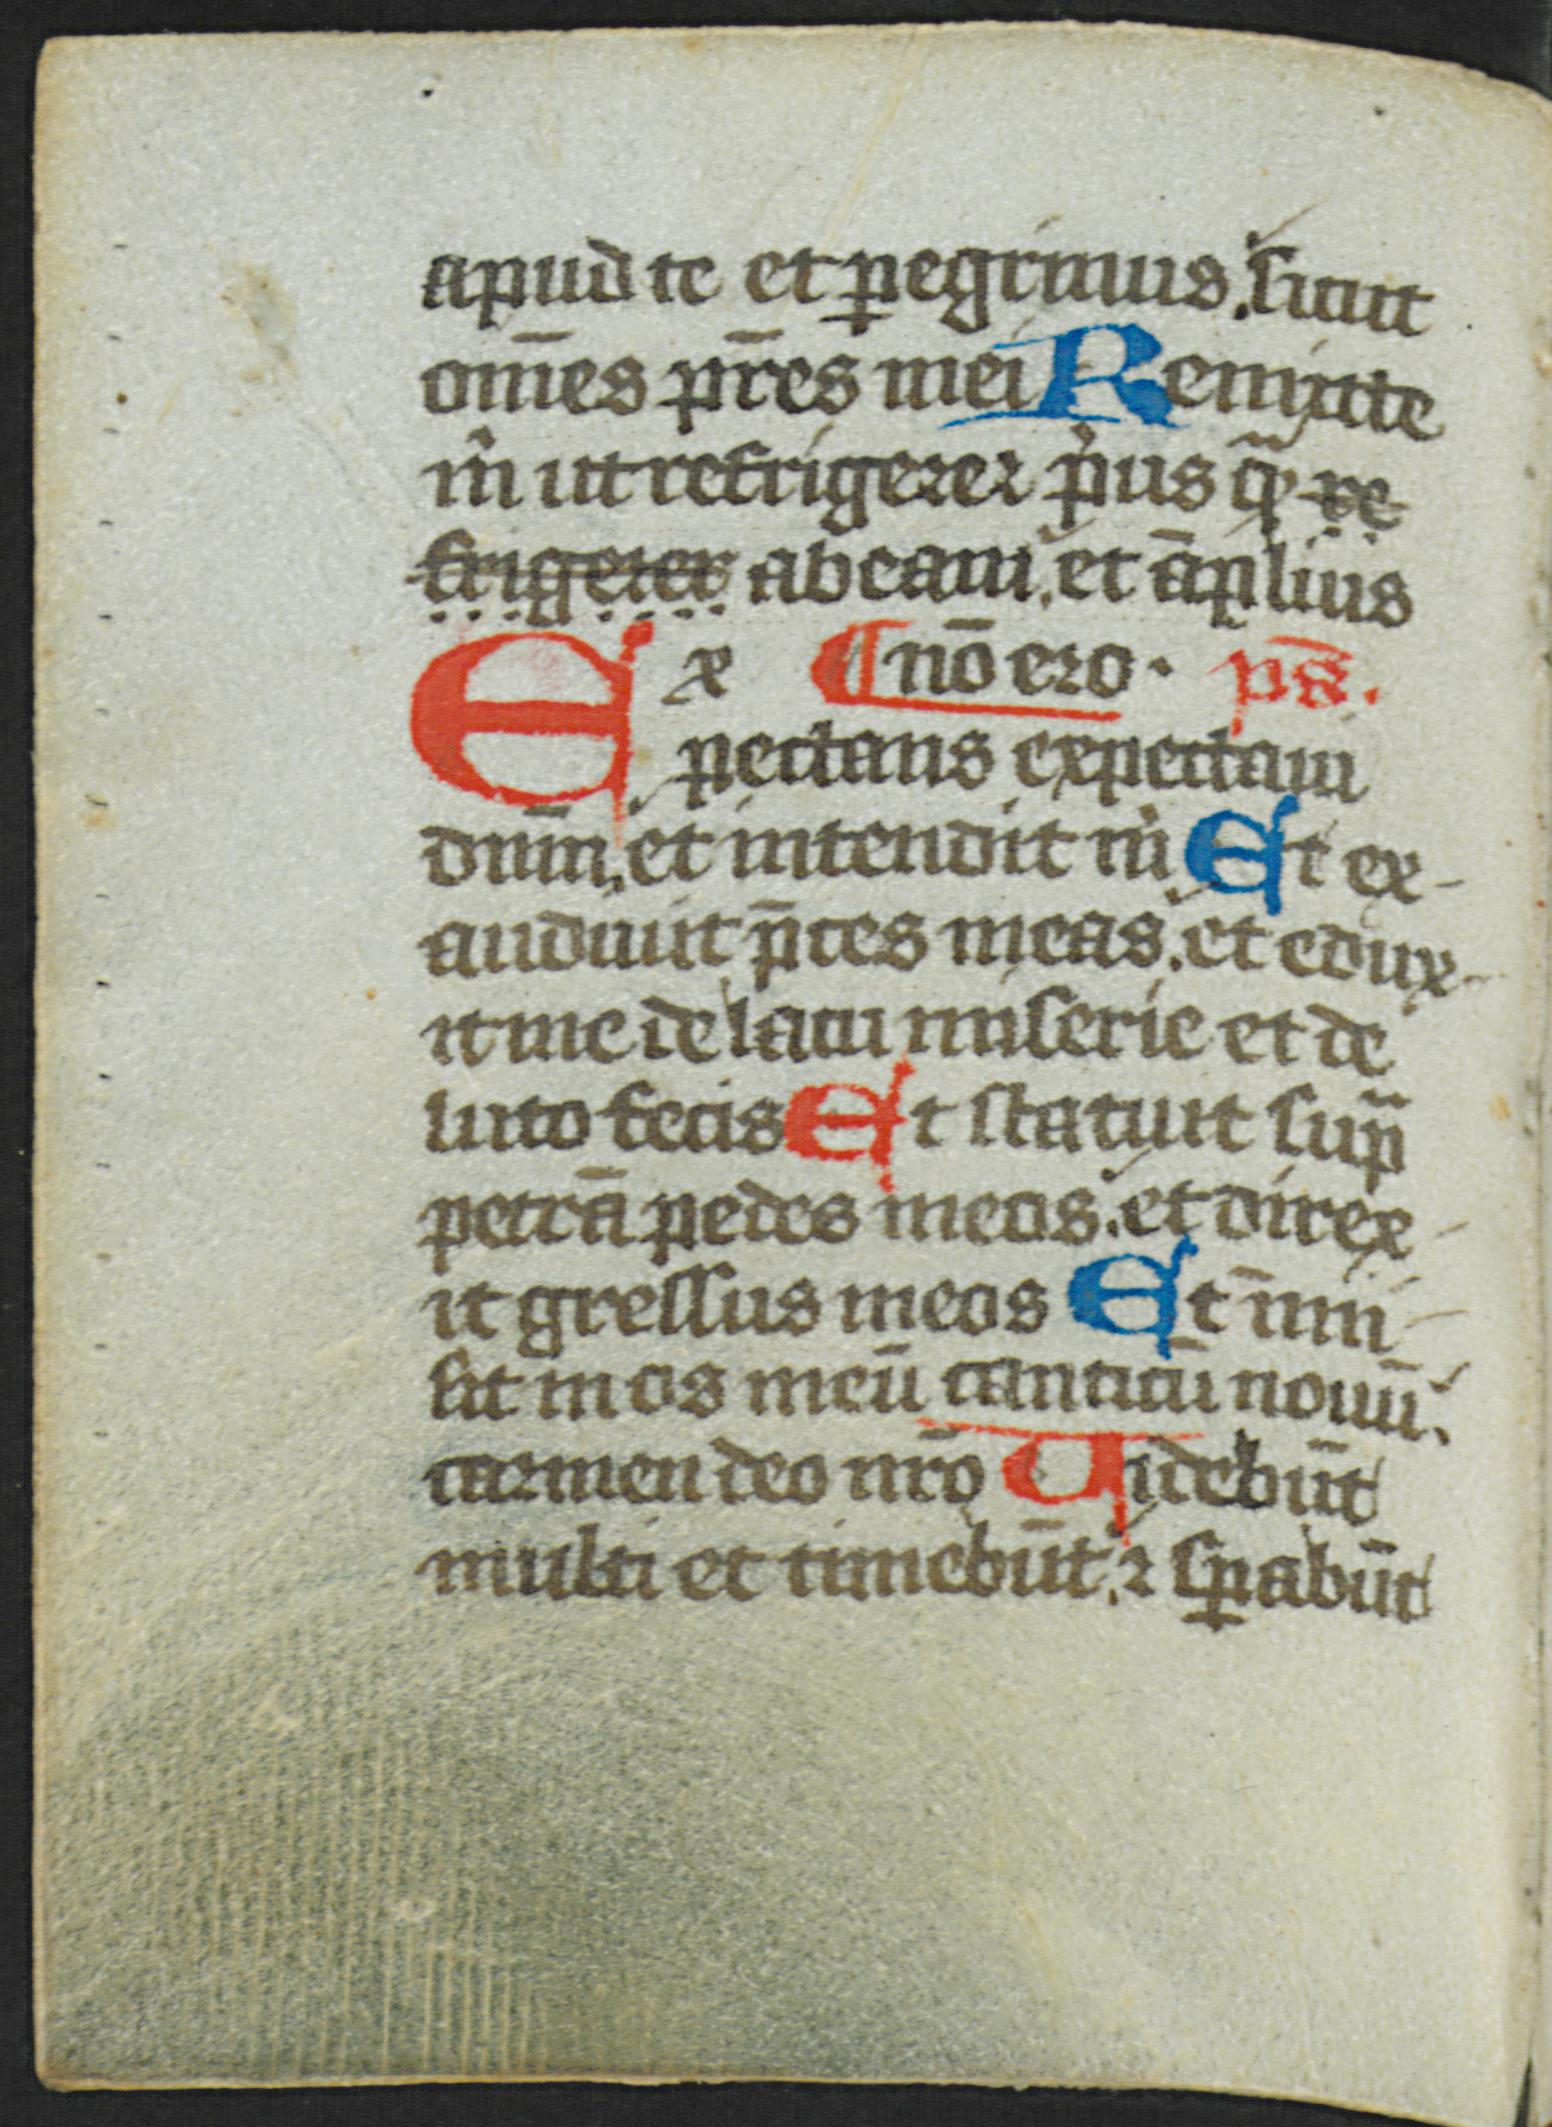 apud te et ꝑegrinus. sicut
om̄es pr̄es mei Remitte
m̊ ut refrigerer pͥus qͣ̃ re
frigerer abeam. et āplius
Ex ¶ nō ero. ps̄.
pectans expectaui
dnm̄. et intendit m̊ Et ex-
audiuit p̄ces meas. et edux-
it me de lacu miserie et de
luto fecis Et statuit sup̄
petrā pedes meos. et direx-
it gressus meos Et īmi-
sit in os meū canticū nouū.
carmen deo nr̄o Uidebūt
multi et timebūt. ⁊ sꝑabūt